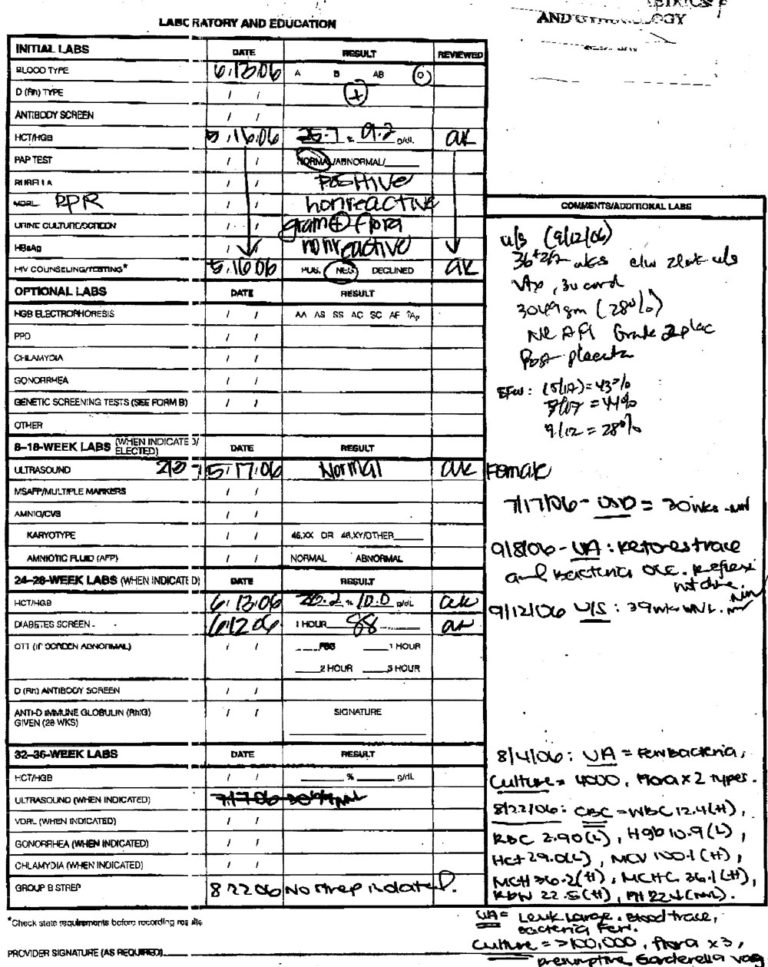 LABORATORY AND EDUCATION
AND
INITIAL LABS DATE RESULT REVIEWED
BLOOD TYPE 6/13/06 A B AB O
D (Rh) TYPE / / +
ANTIBODY SCREEN / /
HCT/HGB 5/16/06 % 9.2 g/dL
PAP TEST / / NORMAL/ABNORMAL/
RUBELLA / / Positive
VDRL RPR / / nonreactive
URINE CULTURE/SCREEN / / gram + flora
HBsAg / / nonreactive
HIV COUNSELING/TESTING* 5/16/06 POS. NEG DECLINED
OPTIONAL LABS DATE RESULT
HGB ELECTROPHORESIS / / AA AS SS AC SC AF
PPD / /
CHLAMYDIA / /
GONORRHEA / /
GENETIC SCREENING TESTS (SEE FORM B) / /
OTHER
8–18-WEEK LABS (WHEN INDICATED/ELECTED) DATE RESULT
ULTRASOUND 5/17/06 Normal
MSAFP/MULTIPLE MARKERS / /
AMNIO/CVS / /
KARYOTYPE / / 46,XX OR 46,XY/OTHER
AMNIOTIC FLUID (AFP) / / NORMAL ABNORMAL
24–28-WEEK LABS (WHEN INDICATED) DATE RESULT
HCT/HGB 6/13/06 % 10.0 g/dL
DIABETES SCREEN 6/12/06 1 HOUR 88
GTT (IF SCREEN ABNORMAL) / / FBS 1 HOUR
2 HOUR 3 HOUR
D (Rh) ANTIBODY SCREEN / /
ANTI-D IMMUNE GLOBULIN (RhIG) / / SIGNATURE
GIVEN (28 WKS)
32–36-WEEK LABS DATE RESULT
HCT/HGB / / % g/dL
ULTRASOUND (WHEN INDICATED) 7/17/06
VDRL (WHEN INDICATED) / /
GONORRHEA (WHEN INDICATED) / /
CHLAMYDIA (WHEN INDICATED) / /
GROUP B STREP 8/22/06 No strep isolated.
*Check state requirements before recording results
PROVIDER SIGNATURE (AS REQUIRED)
COMMENTS/ADDITIONAL LABS
u/s (9/12/06)
36+2/7 wks c/w u/s
Vtx, 3v cord
3049 gm (28%)
Nl AFI Grade 2 plac
Post placenta
EFW: (5/17) = 43%
7/17 = 44%
9/12 = 28%
Female
7/17/06 - USD = 30 wks
9/8/06 - UA: Ketones trace
and bacteria occ. Reflex
not done.
9/12/06 U/S: 39wk WNL.
8/4/06: UA = Few bacteria,
Culture = 4000, Flora x 2 types.
8/22/06: CBC = WBC 12.4(H),
RBC 2.90(L), Hgb 10.9(L),
Hct 29.0(L), MCV 100.1(H),
MCH 36.2(H), MCHC 36.1(H),
RDW 22.5(H), Plt 224(NL).
UA = Leuk Large. Blood trace,
bacteria Few.
Culture = >100,000, flora x 3,
presumptive Gardnerella vag